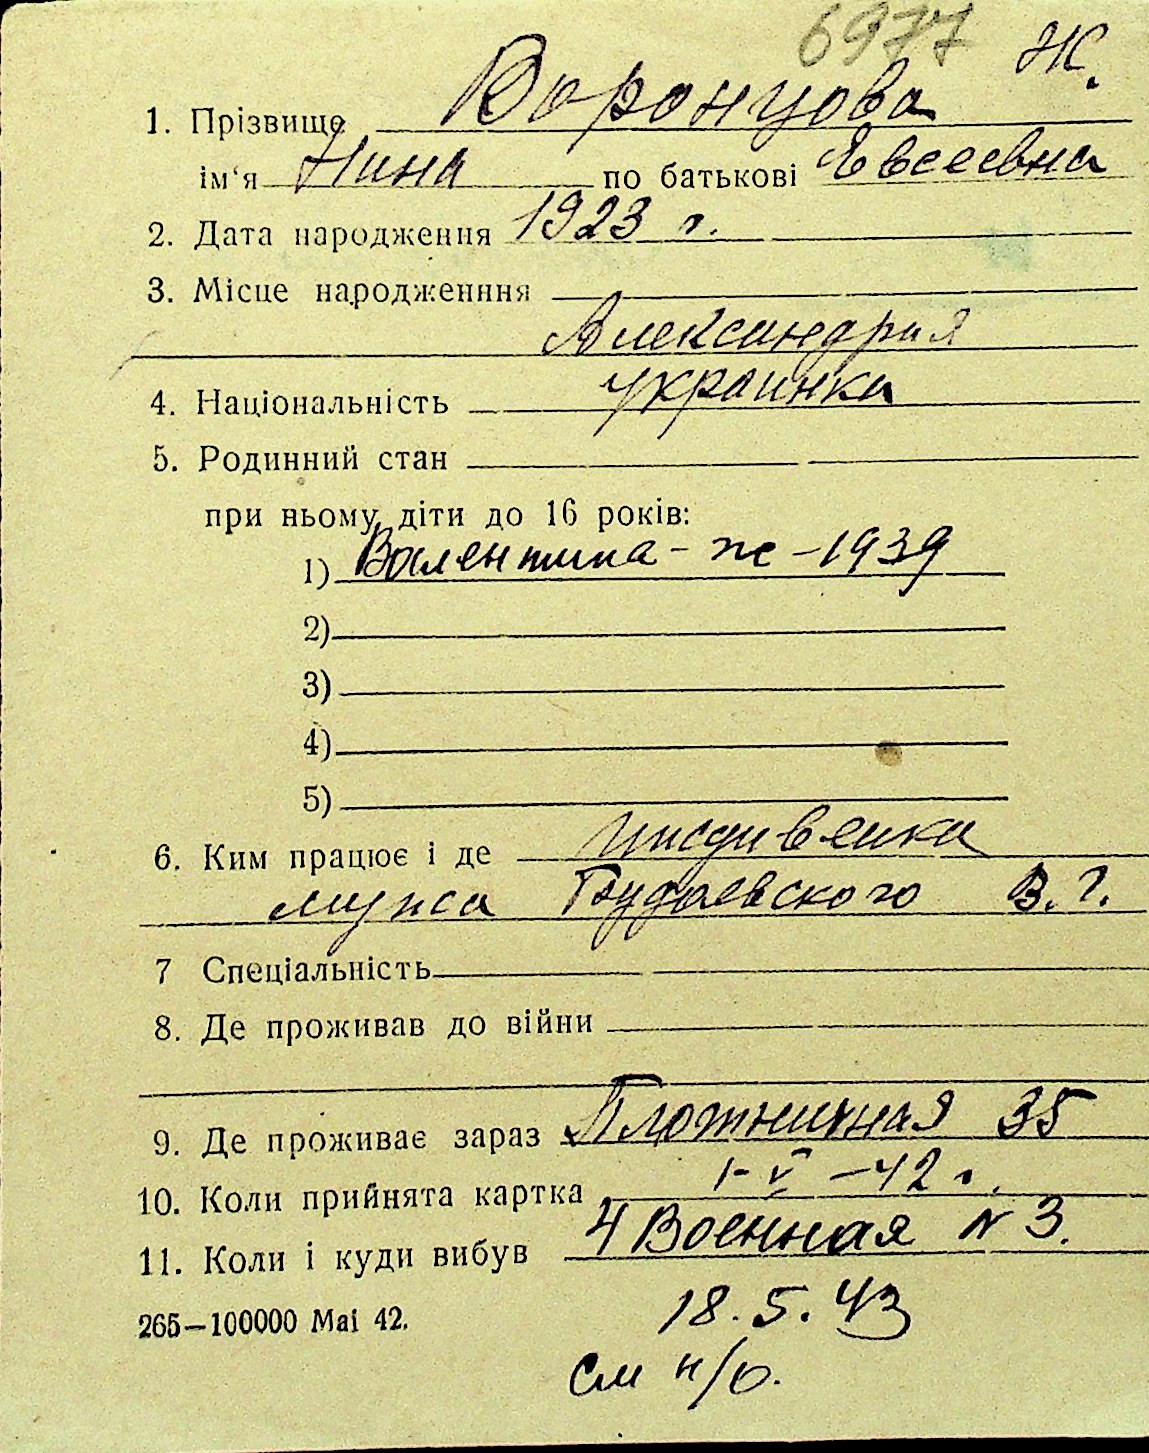 6977 Ж.
1. Прізвище Воронцова
ім‘я Нина по батькові Евсеевна
2. Дата народження 1923 г.
3. Місце народженння
Александрия
4. Національність украинка
5. Родинний стан
при ньому діти до 16 років:
1) Валентина - ж - 1939
2)
3)
4)
5)
6. Ким працює і де иждивенка
мужа В. Г.
7 Спеціальність
8. Де проживав до війни
9. Де проживає зараз Плотничная 35
10. Коли прийнята картка 1-V-42 г.
11. Коли і куди вибув 4 Военная N 3.
265—100000 Mai 42.
18. 5. 43
см н/о.